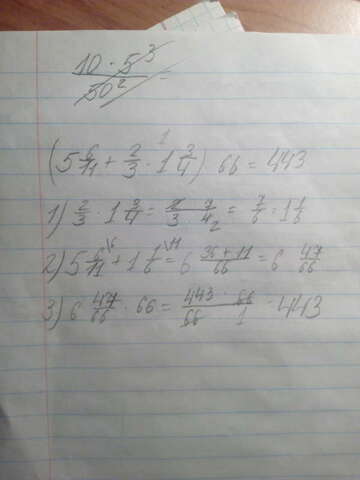 10 · 5³
50² =
(5 6/11 + 2/3 · 1 3/4) 66 = 443
1) 2/3 · 1 3/4 = 2/3 7/4 2 = 7/6 = 1 1/6
2) 5 6/11 \6 + 1 1/6 \11 = 6 36+11/66 = 6 47/66
3) 6 47/66 · 66 = 443 · 66/66 1 = 443